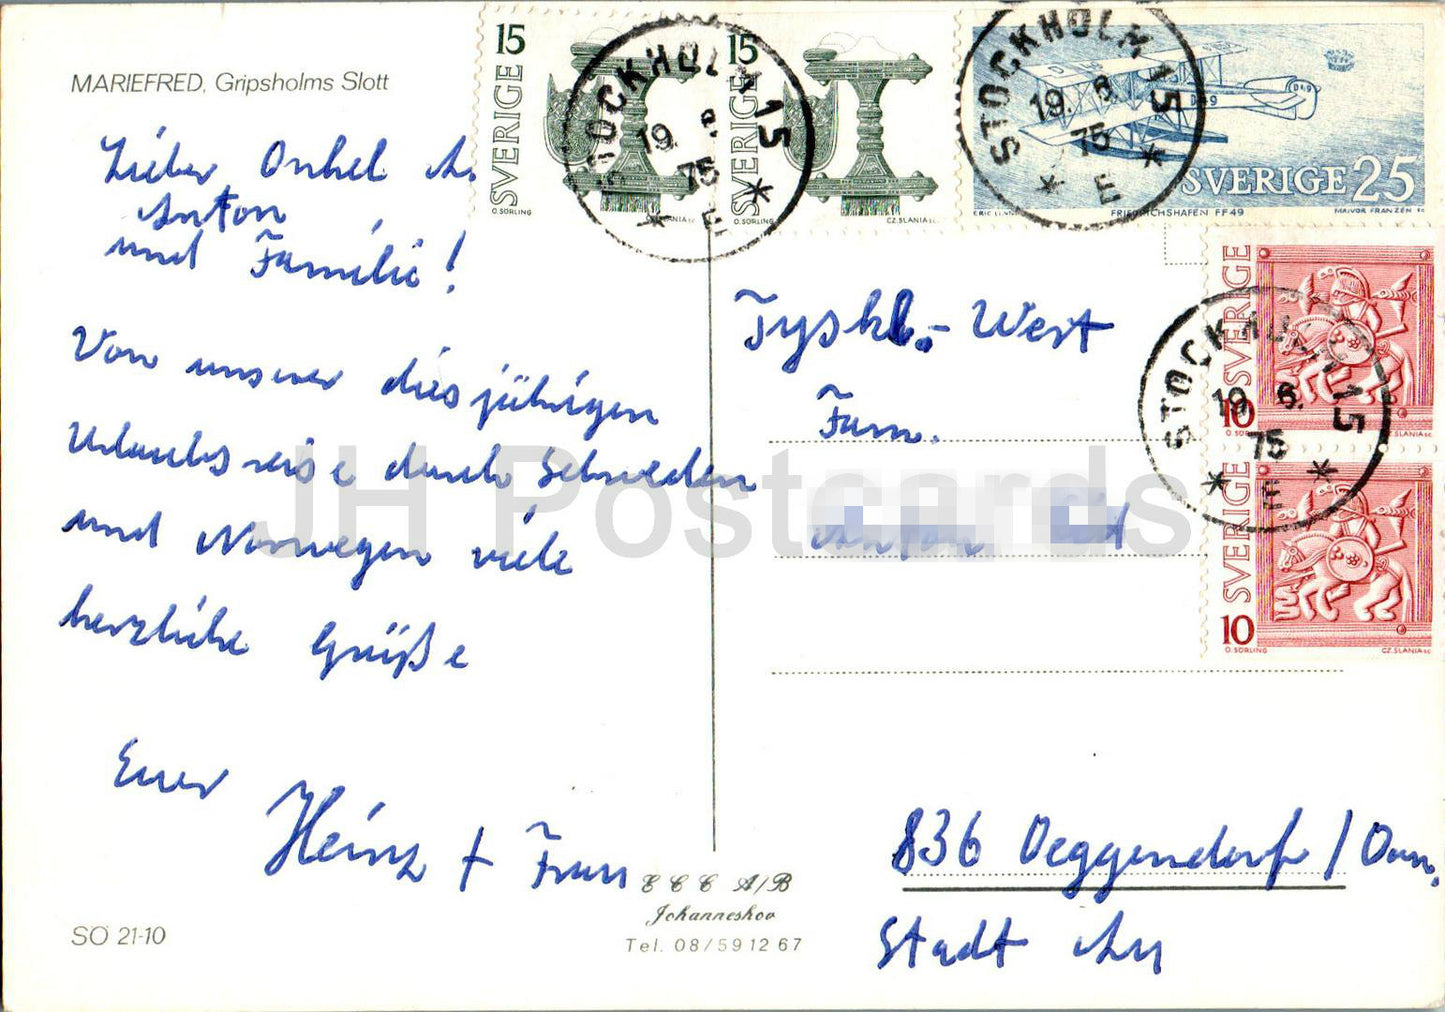 MARIEFRED, Gripsholms Slott
Lieber Onkel
Anton
und Familie!
Von unserer diesjährigen
Urlaubsreise durch Schweden
und Norwegen viele
herzliche Grüße
Euer
Heinz + Frau
SÖ 21-10
E C C A/B
Johanneshov
Tel. 08/59 12 67
15
SVERIGE
O. SÖRLING
15
SVERIGE
O. SÖRLING
CZ. SLANIA sc
STOCKHOLM 15
19. 6.
75
* E *
D49
SVERIGE 25
FRIEDRICHSHAFEN FF49
MAJVOR FRANZÉN sc
STOCKHOLM 15
19. 6.
75
* E *
SVERIGE
10
O. SÖRLING
CZ. SLANIA sc
STOCKHOLM 15
19. 6.
75
* E *
SVERIGE
10
O. SÖRLING
CZ. SLANIA sc
Tyskl.- West
Fam.
Anton
836 Deggendorf / Don.
Stadt Au
JH Postcards